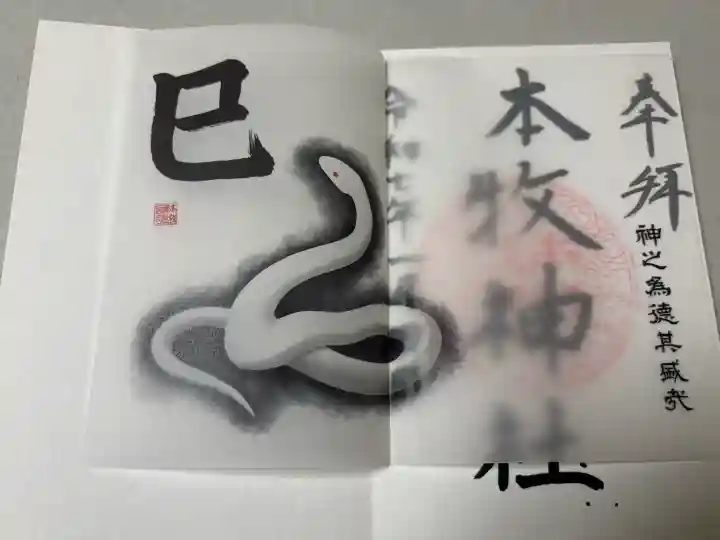 奉拝
神之為徳其盛哉
本牧神社
令和七年一月
巳